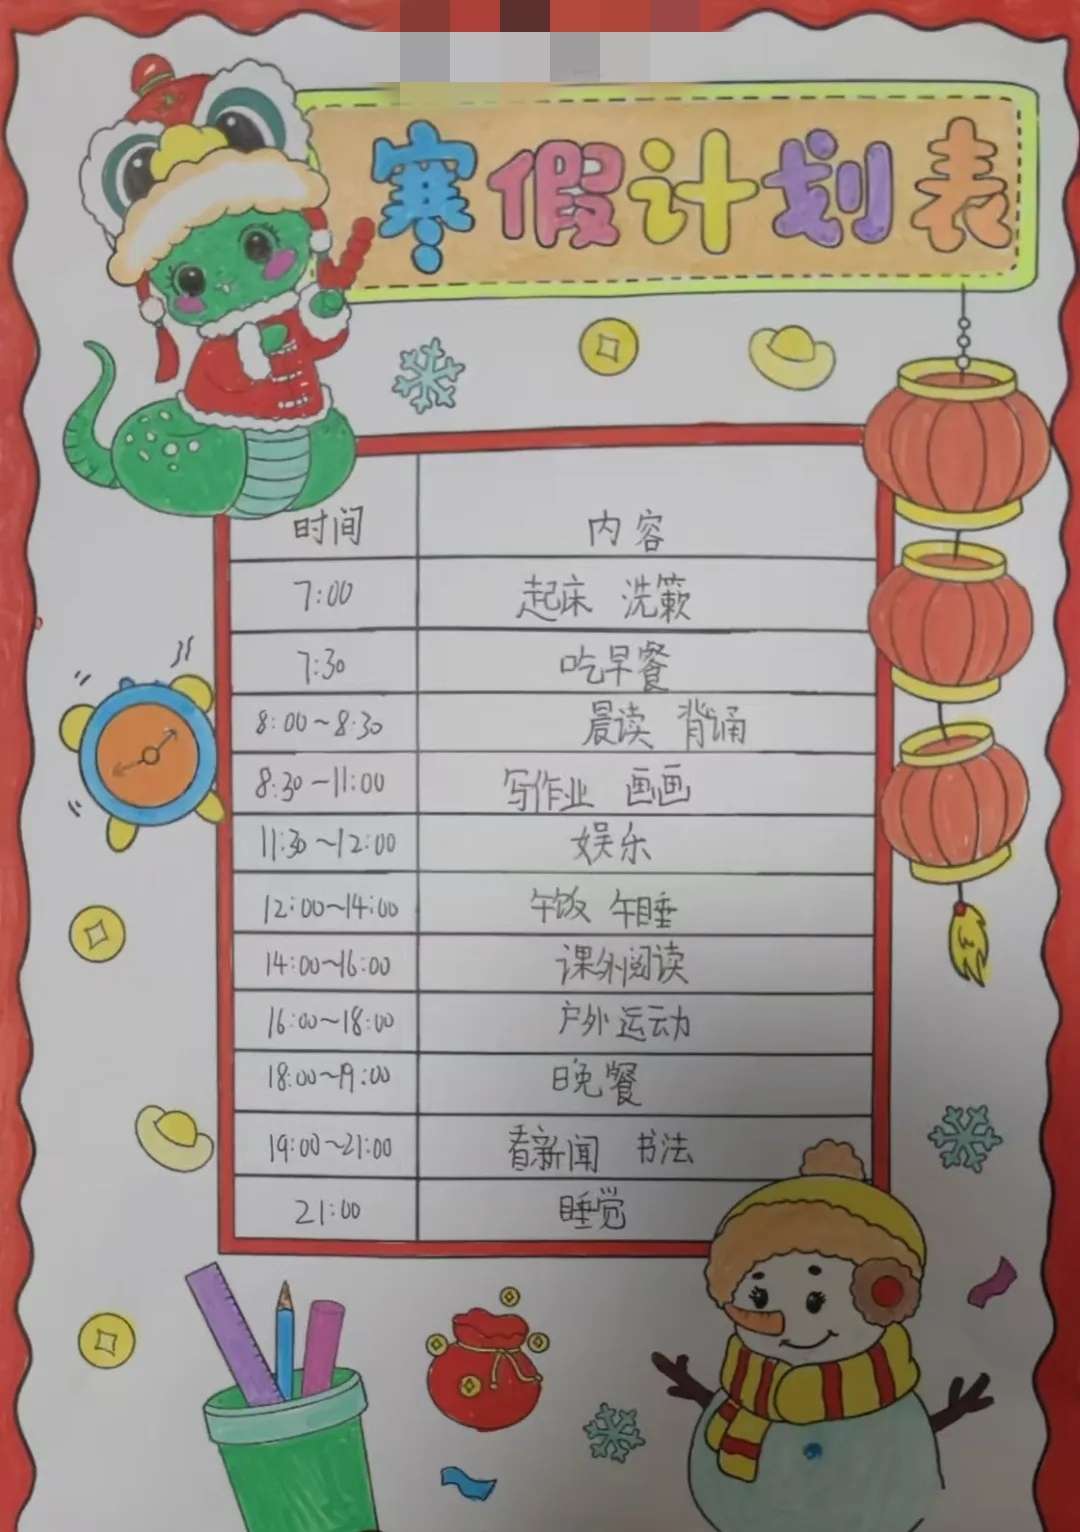 寒假计划表
时间 内容
7:00 起床 洗漱
7:30 吃早餐
8:00~8:30 晨读 背诵
8:30-11:00 写作业 画画
11:30~12:00 娱乐
12:00~14:00 午饭 午睡
14:00~16:00 课外阅读
16:00~18:00 户外运动
18:00~19:00 晚餐
19:00~21:00 看新闻 书法
21:00 睡觉